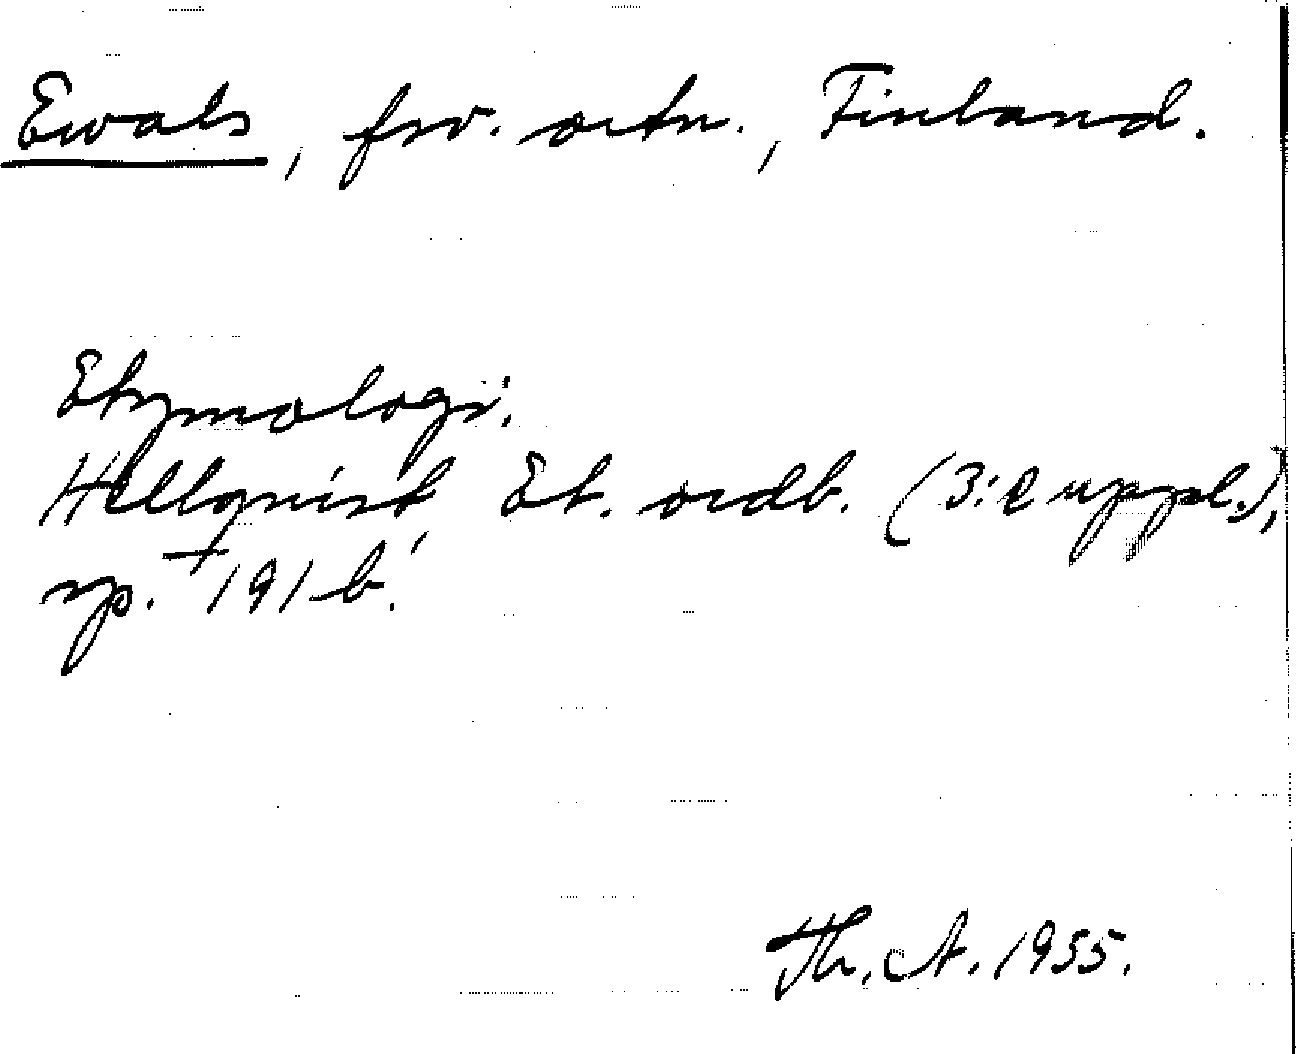 Ewals, fsv. ortn., Finland.
Etymologi.
Hellquist, Et. ordb. (3:e uppl.),
sp. 191 b.
Th. A. 1955.